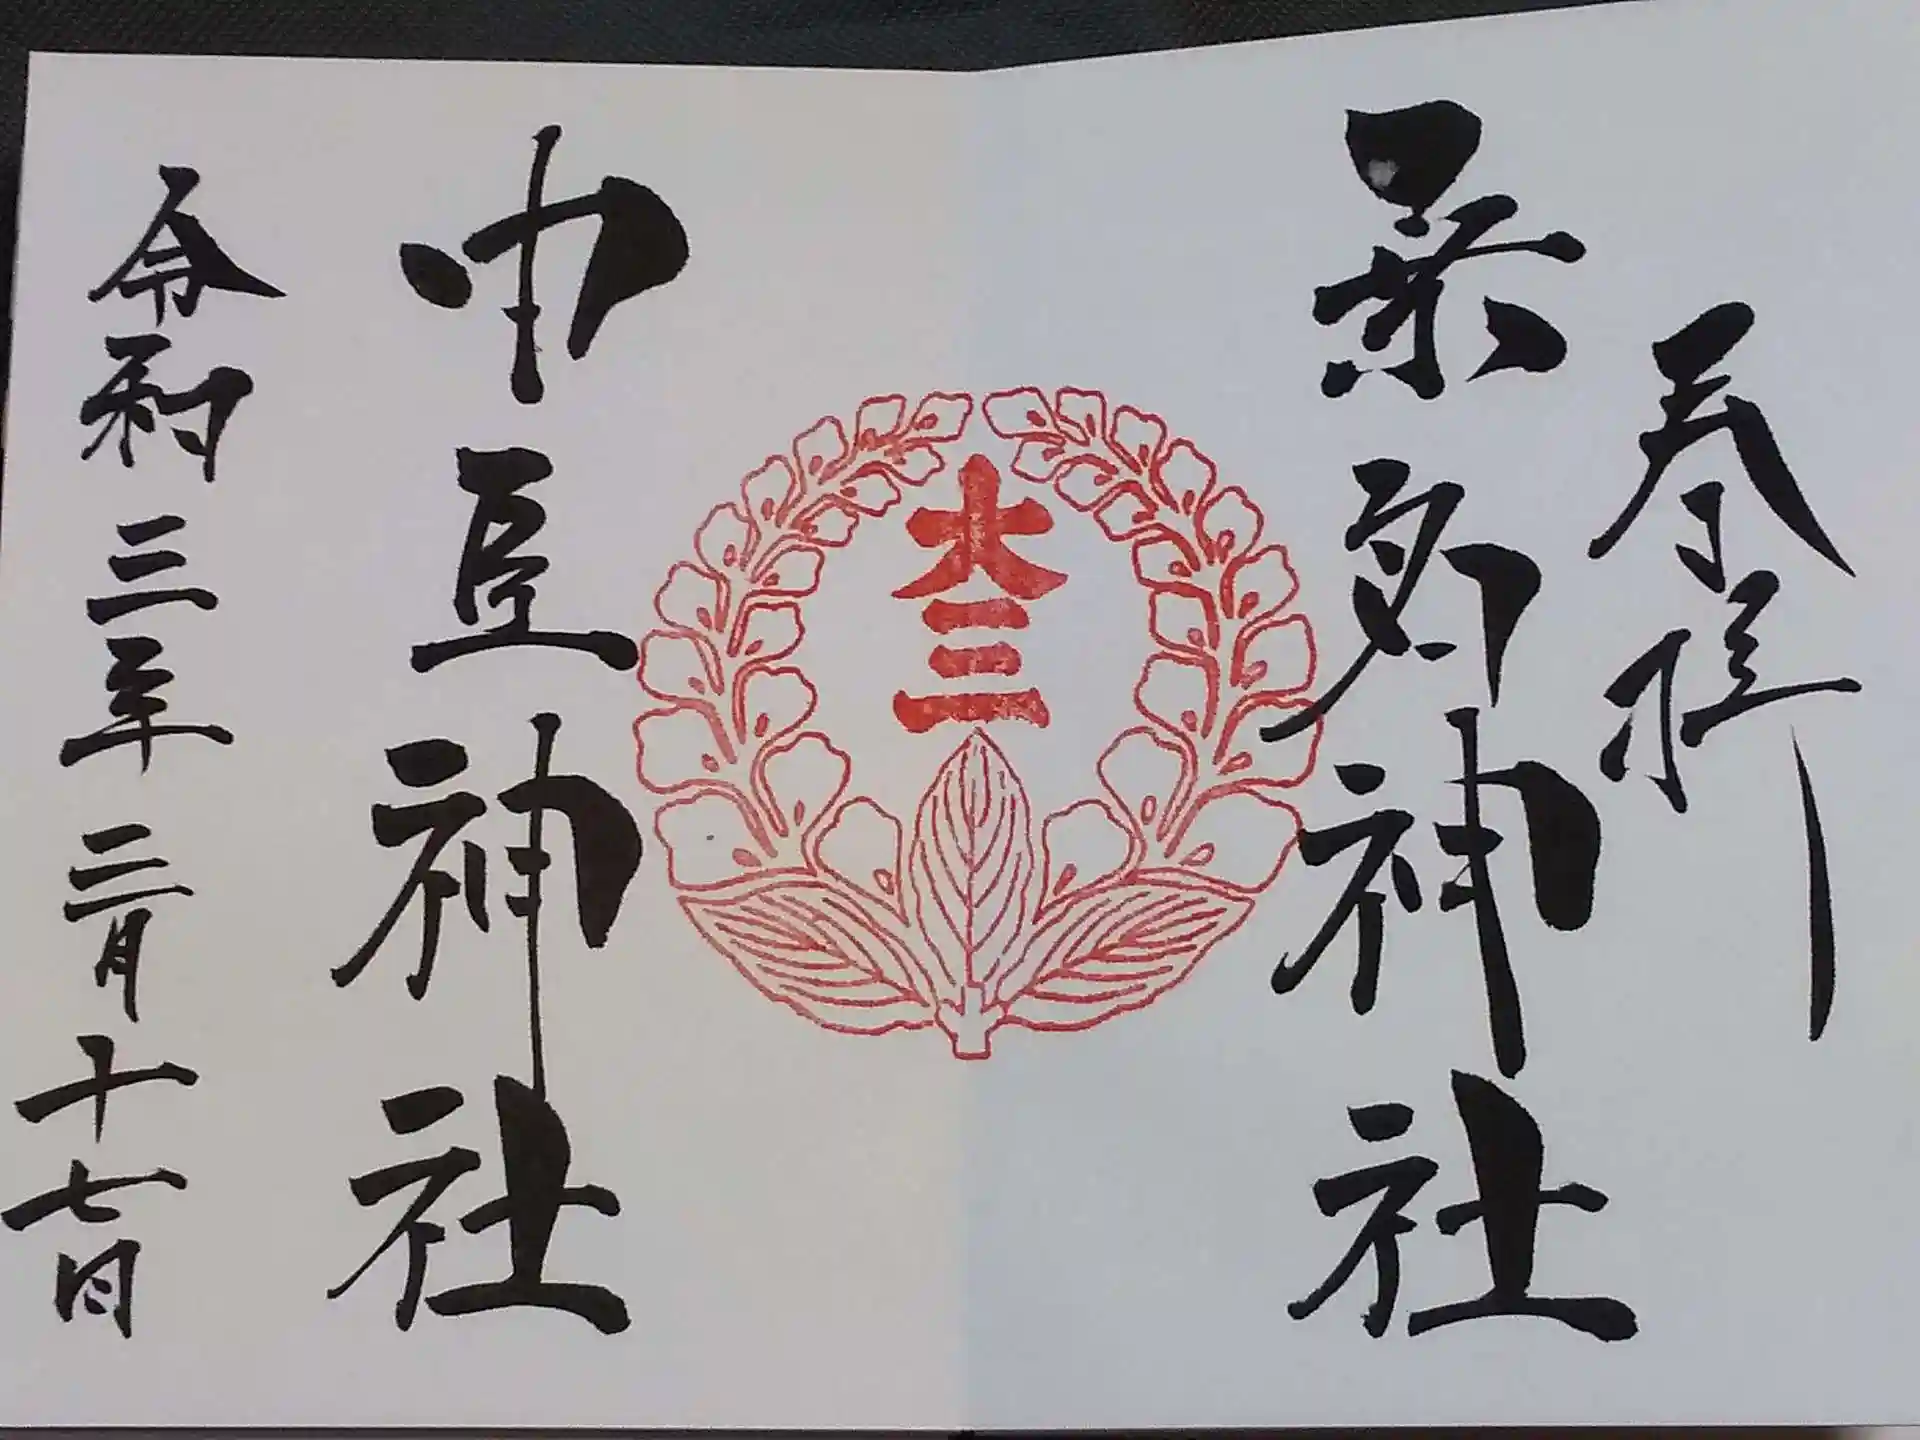 奉拝
桑名神社
大三
中臣神社
令和三年三月十七日